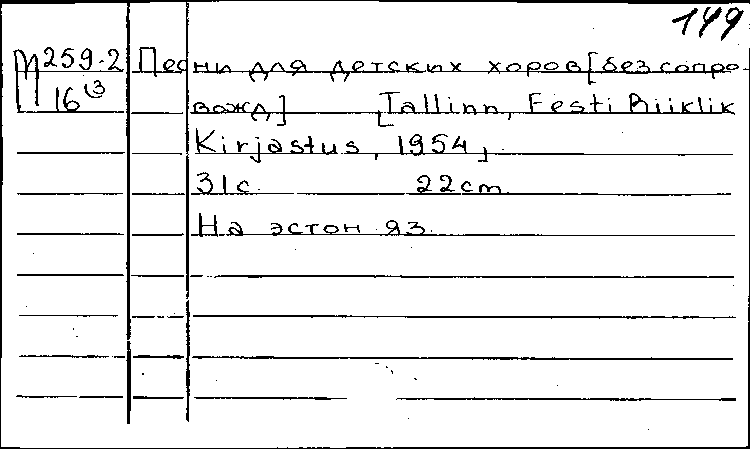 149
М 259-2 Песни для детских хоров [без сопро-
16 вожд.] [Tallinn, Eesti Riiklik
Kirjastus, 1954]
31с. 22cm.
На эстон яз.